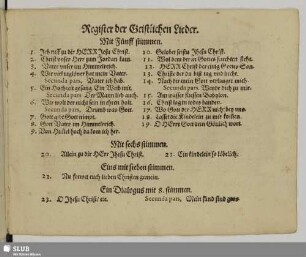 Register der Geistlichen Lieder.
Mit Fünff stimmen.
1. Jesu du HERR Jesu Christ.
2. Christ unser Herr zum Jordan kam.
3. Vater unser im Himmelreich.
4. Wie viel taglöner hat mein Vater.
Secunda pars, Vater ich hab.
5. Ein Hochzeit gesang, Ein Weib mit.
Secunda pars, Der Mann des auch.
6. Wer wolt der nicht sein in ihrem holt.
Secunda pars, Drumb o
7. Gott gibt Gott nimpt.
8. Gott Vater im Himmelreich.
9. Von Himel hoch da kom ich her.
10. Gelobet seistu Jhesu Christ.
11. Wol dem der in Gottes furchten steht.
12. HERR Christ der einig Gottes Son.
13. Christe der du bist tag und liecht.
14. Nach dir mein Gott verlanget mich.
Secunda pars, Wende dich zu mir.
15. An wasser flüssen Babylon.
16. Christ lag in todes banden.
17. Wo Gott der HERR nicht bey uns.
18. Lasset die Kindelein zu mir kommen.
19. O HErre Gott dein Göttlich wort.
Mit sechs stimmen.
20. Allein zu dir HErr Jhesu Christ. 21. Ein kindelein so löbelich.
Eins mit sieben stimmen.
22. Nu frewet euch lieben Christen gemein.
Ein Dialogus mit 8. stimmen.
23. O Jhesu Christ/ etc. Secunda pars, Mein sünd sind gros.
SLUB